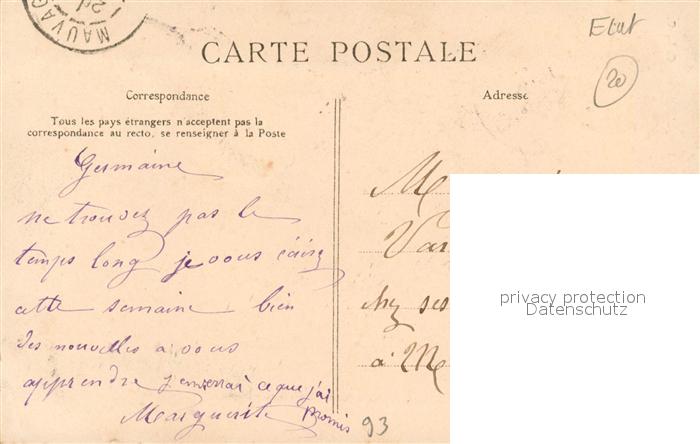 MAUVAG
Etat
CARTE POSTALE
20
Correspondance
Adresse
Tous les pays étrangers n'acceptent pas la
correspondance au recto, se renseigner à la Poste
Germaine
ne trouvez pas le
temps long je vous écirez
cette semaine bien
des nouvelles a vous
apprendre j'enverrai ce que j'ai
promis
Marguerite
93
M
Var
chez ses
à M
privacy protection
Datenschutz